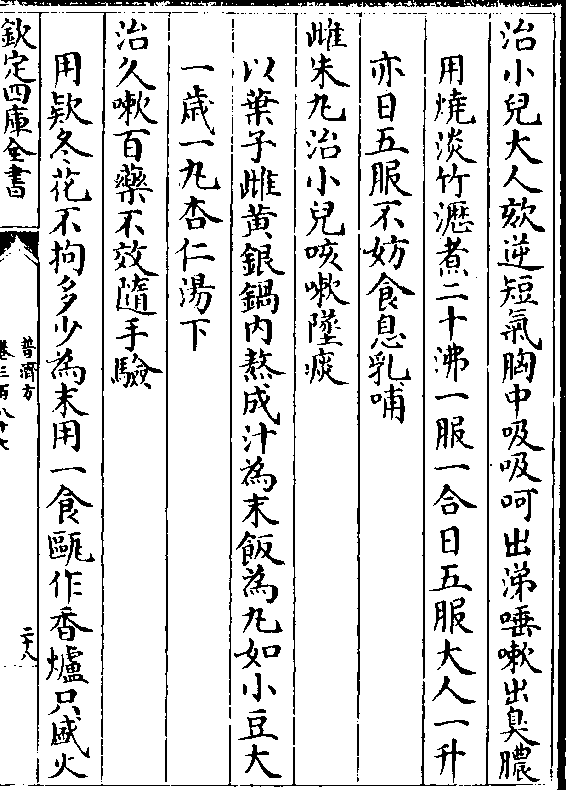 治小兒大人欬逆短氣胸中吸吸呵出涕唾嗽出臭膿
用燒淡竹瀝煮二十沸一服一合日五服大人一升
亦日五服不妨食息乳哺
雌朱九治小兒咳嗽墜痰
以葉子雌黄銀鍋内熬成汁為末飯為九如小豆大
一歳一九杏仁湯下
治久嗽百藥不效隨手驗
用欵冬花不拘多少為末用一食甌作香爐只盛火
欽定四庫全書
普濟方
卷三百八十七
二十八